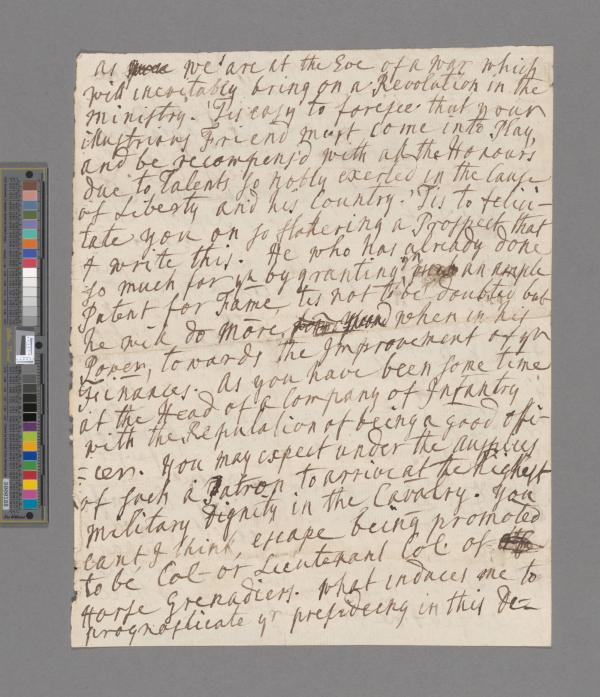 as we are at the Eve of a war which
will inevitably bring on a Revolution in the
ministry. 'Tis easy to foresee that your
illustrious Friend must come into Play,
and be recompens'd with all the Honours
due to Talents so nobly exerted in the cause
of Liberty and his Country. 'Tis to felici-
tate you on so flattering a Prospect that
I write this. He who has already done
so much for yu by granting yu an ample
Patent for Fame, tis not to be doubted but
he will do more, when in his
Power, towards the Improvement of yr
Finances. As you have been some time
at the Head of a Company of Infantry
with the Reputation of being a good offi-
-cer. You may expect under the auspices
of such a Patron to arrive at the highest
military Dignity in the Cavalry. You
cant, I think, escape being promoted
to be Col- or Lieutenant Col. of
Horse Grenadiers. What induces me to
prognosticate yr presideing in this De-